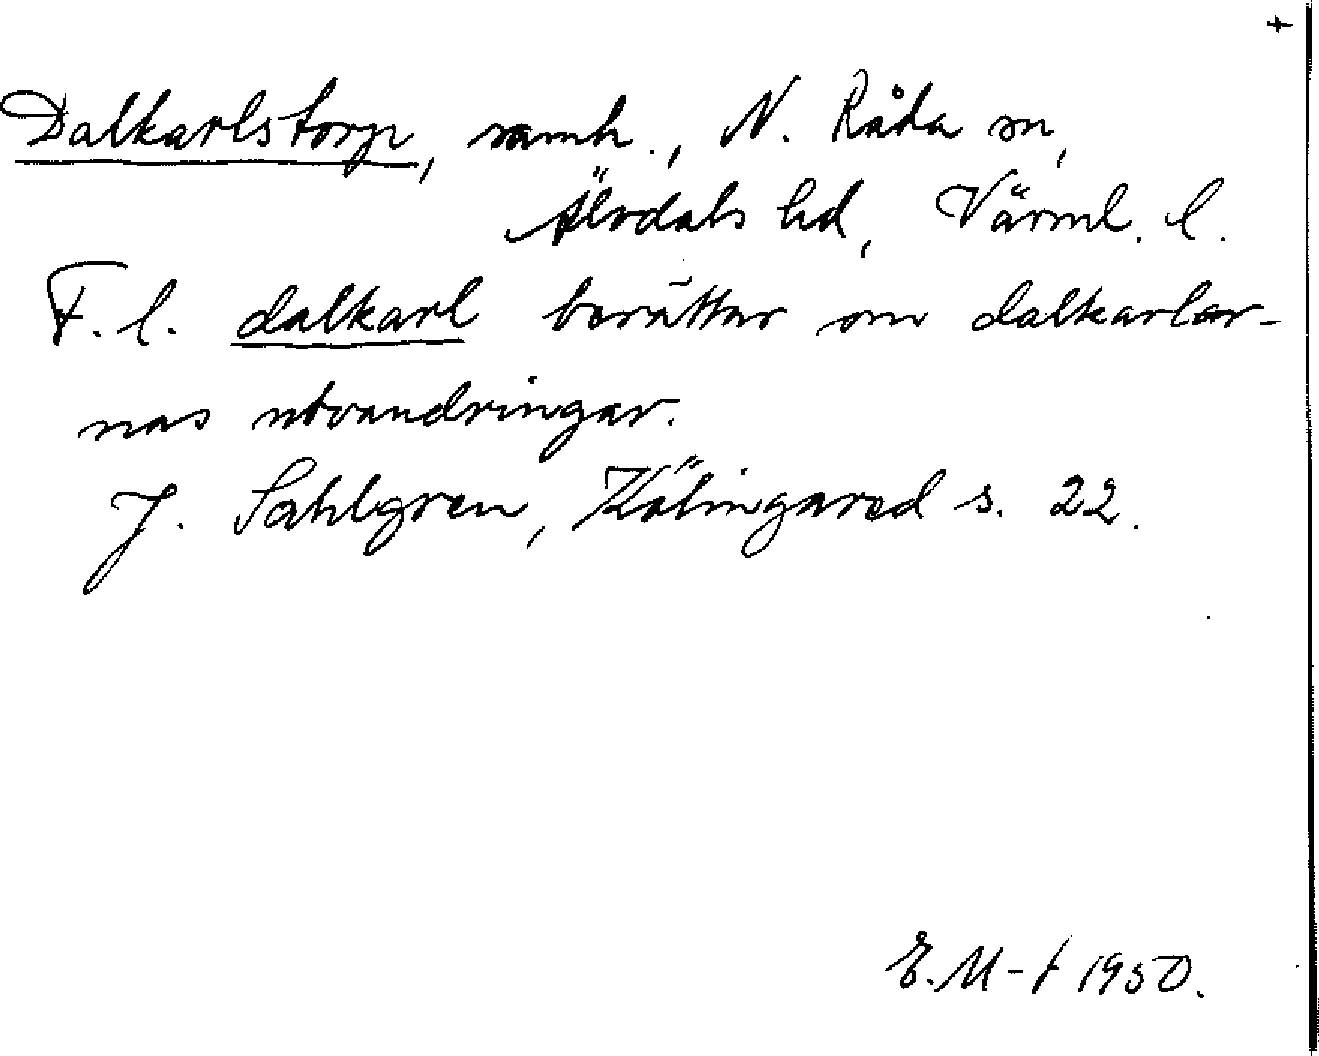 +
Dalkarlstorp, samh., N. Råda sn,
Älvdals hd, Värml. l.
F. l. dalkarl berättar om dalkarlar-
nas utvandringar.
J. Sahlgren, Kölingared s. 22.
E. M-t 1950.